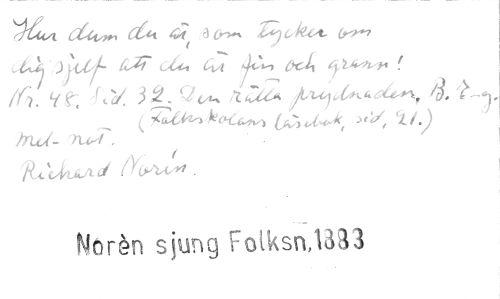 Hur dum du är, som tycker om
dig sjelf att du är fin och grann!
Nr. 48. Sid. 32. Den rätta prydnaden. B. E-g.
(Folkskolans läsebok, sid, 21.)
mel- not.
Richard Norén.
Norèn sjung Folksn,1883